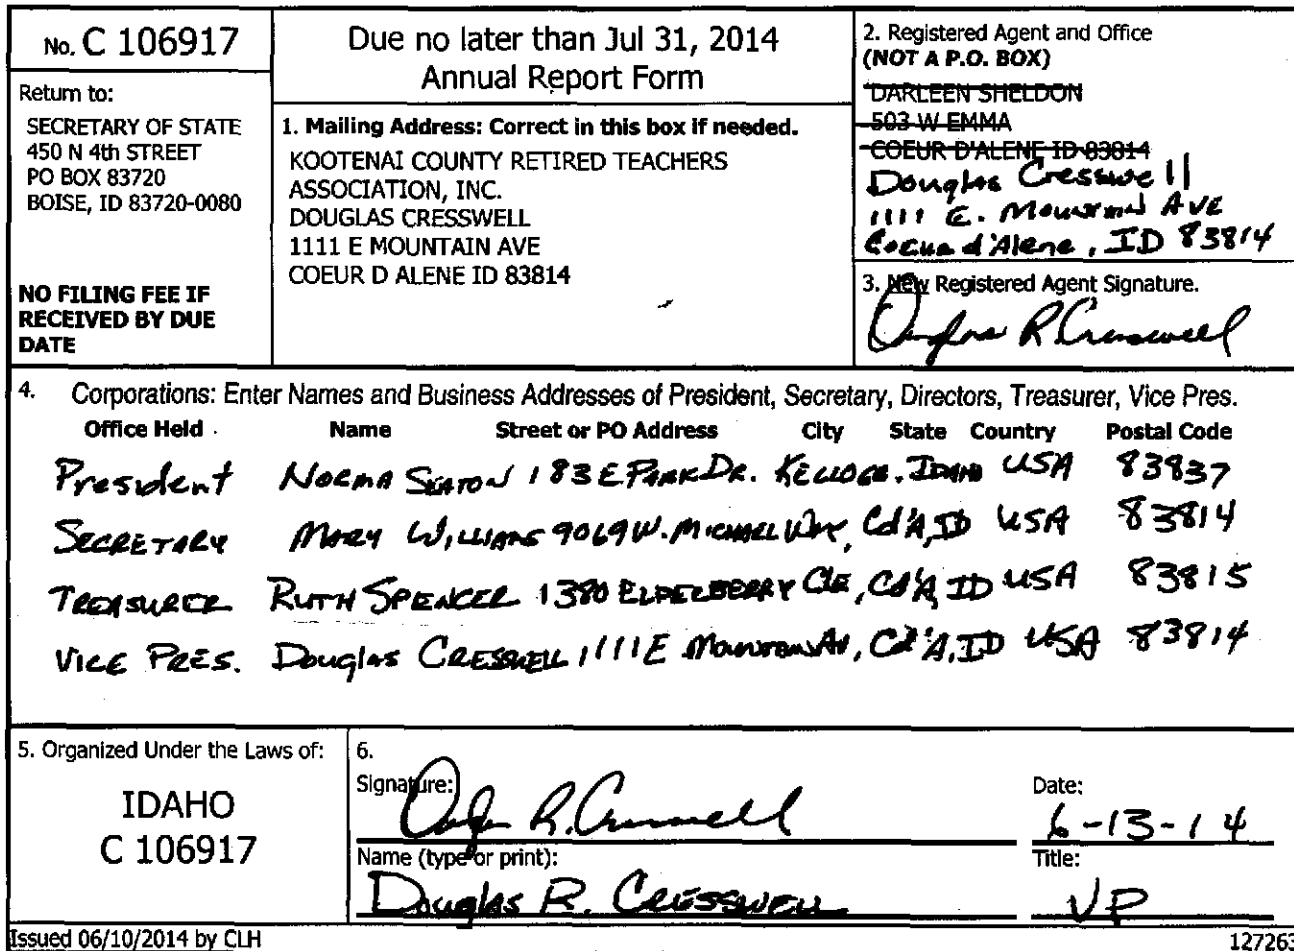 No. C 106917
Return to:
SECRETARY OF STATE
450 N 4th STREET
PO BOX 83720
BOISE, ID 83720-0080
NO FILING FEE IF
RECEIVED BY DUE
DATE
Due no later than Jul 31, 2014
Annual Report Form
1. Mailing Address: Correct in this box if needed.
KOOTENAI COUNTY RETIRED TEACHERS
ASSOCIATION, INC.
DOUGLAS CRESSWELL
1111 E MOUNTAIN AVE
COEUR D ALENE ID 83814
2. Registered Agent and Office
(NOT A P.O. BOX)
DARLEEN SHELDON
503 W EMMA
COEUR D'ALENE ID 83814
Douglas Cresswell
1111 E. Mountain AVE
Coeur d'Alene, ID 83814
3. New Registered Agent Signature.
Douglas R Cresswell
4. Corporations: Enter Names and Business Addresses of President, Secretary, Directors, Treasurer, Vice Pres.
Office Held Name Street or PO Address City State Country Postal Code
President NORMA SEATON 183 E PARK DR. KELLOGG, IDAHO USA 83837
SECRETARY MARY WILLIAMS 9069 W. MICHAEL WAY, Cd'A, ID USA 83814
TREASURER RUTH SPENCER 1380 ELDERBERRY CIR, Cd'A, ID USA 83815
VICE PRES. Douglas CRESSWELL 1111 E Mountain Av, Cd'A, ID USA 83814
5. Organized Under the Laws of:
IDAHO
C 106917
6.
Signature: Douglas R. Cresswell
Date: 6-13-14
Name (type or print): Douglas R. CRESSWELL
Title: VP
Issued 06/10/2014 by CLH
127263